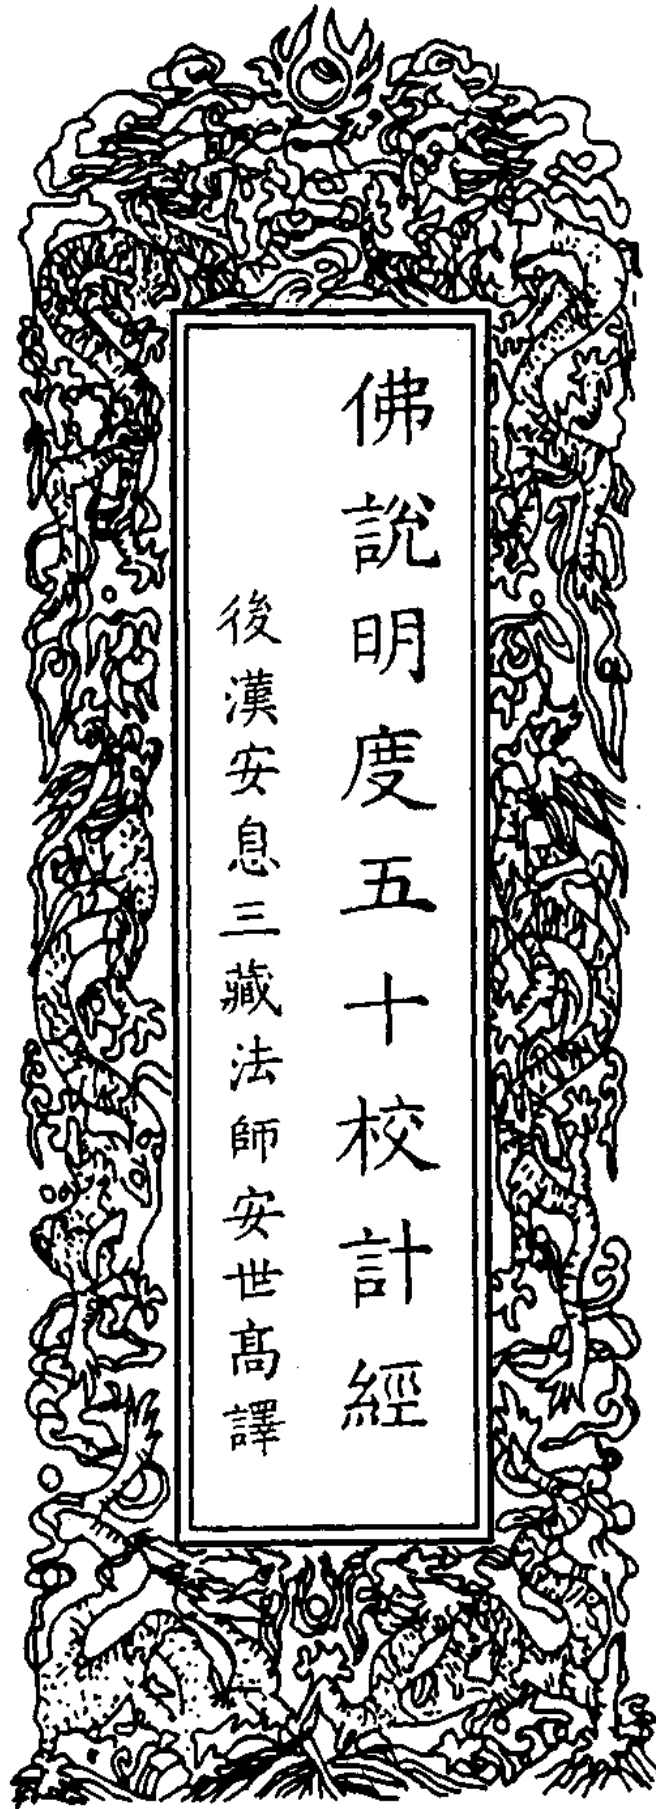 佛說明度五十校計經
後漢安息三藏法師安世高譯